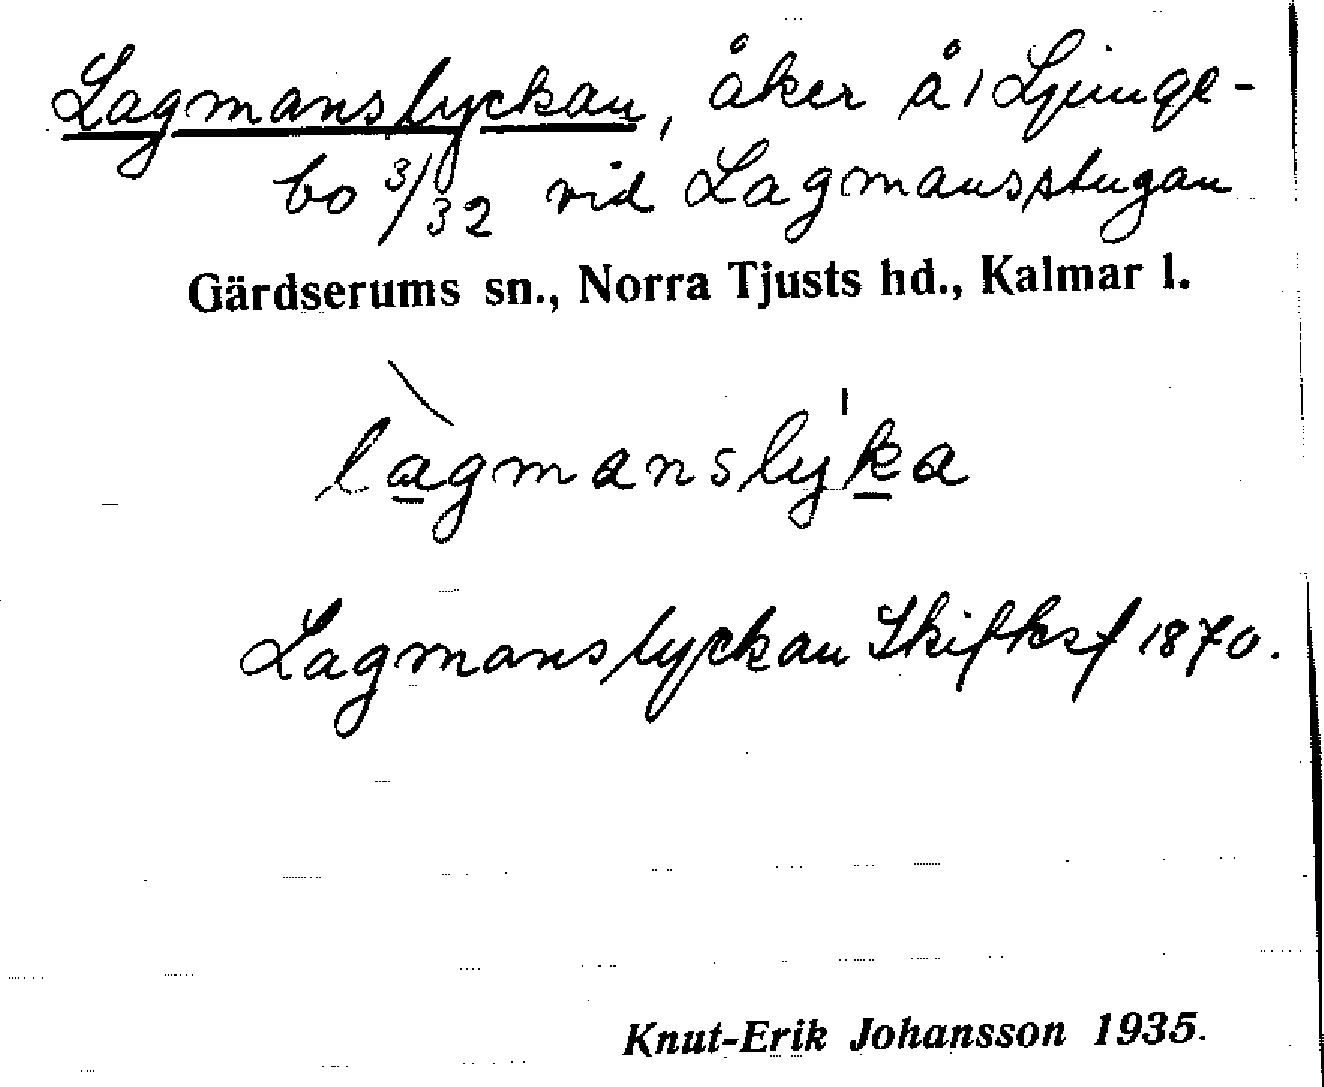 Lagmanslyckan, åker å 1 Ljunge-
bo 3/32 vid Lagmansstugan
Gärdserums sn., Norra Tjusts hd., Kalmar l.
làgmanslýka
Lagmanslyckan Skifksf 1870.
Knut-Erik Johansson 1935.